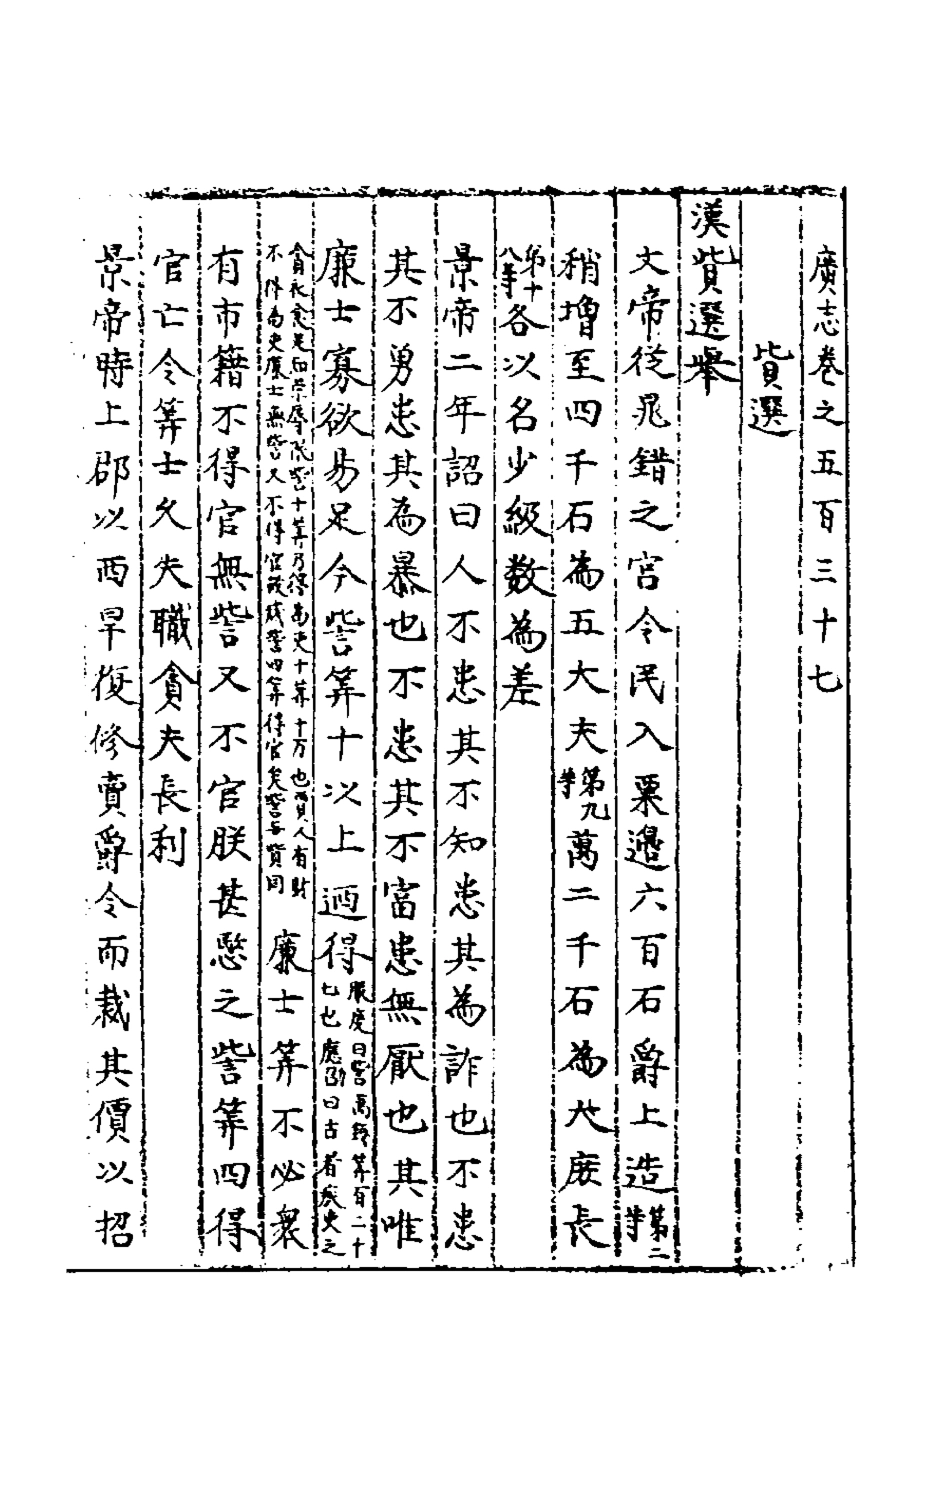 廣志卷之五百三十七
貲選
漢貲選舉
文帝從鼂錯之言令民入粟邊六百石爵上造第二等
稍增至四千石為五大夫第九等萬二千石為大庶長
第十八等各以名少級數為差
景帝二年詔曰人不患其不知患其為詐也不患
其不勇患其為暴也不患其不富患無厭也其唯
廉士寡欲易足今訾算十以上迺得服虔曰訾萬錢算百二十七也應劭曰古者疾吏之
貪衣食足知榮辱限訾十算乃得為吏十算十万也賈人有財不得為吏廉士無訾又不得官故減訾四算得官矣訾与貲同廉士算不必衆
有市籍不得官無訾又不官朕甚愍之訾算四得
官亡令算士久失職貪夫長利
景帝時上郡以西旱復修賣爵令而裁其價以招